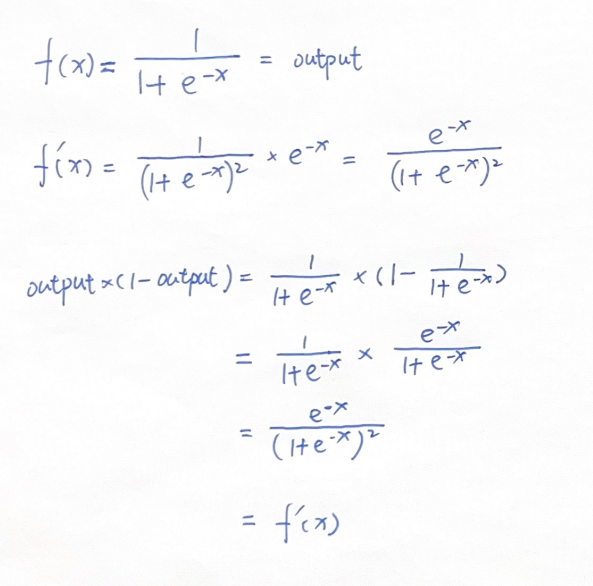 f(x) = 1 / (1 + e^-x) = output
f'(x) = 1 / (1 + e^-x)² × e^-x = e^-x / (1 + e^-x)²
output × (1 - output) = 1 / (1 + e^-x) × (1 - 1 / (1 + e^-x))
= 1 / (1 + e^-x) × e^-x / (1 + e^-x)
= e^-x / (1 + e^-x)²
= f'(x)